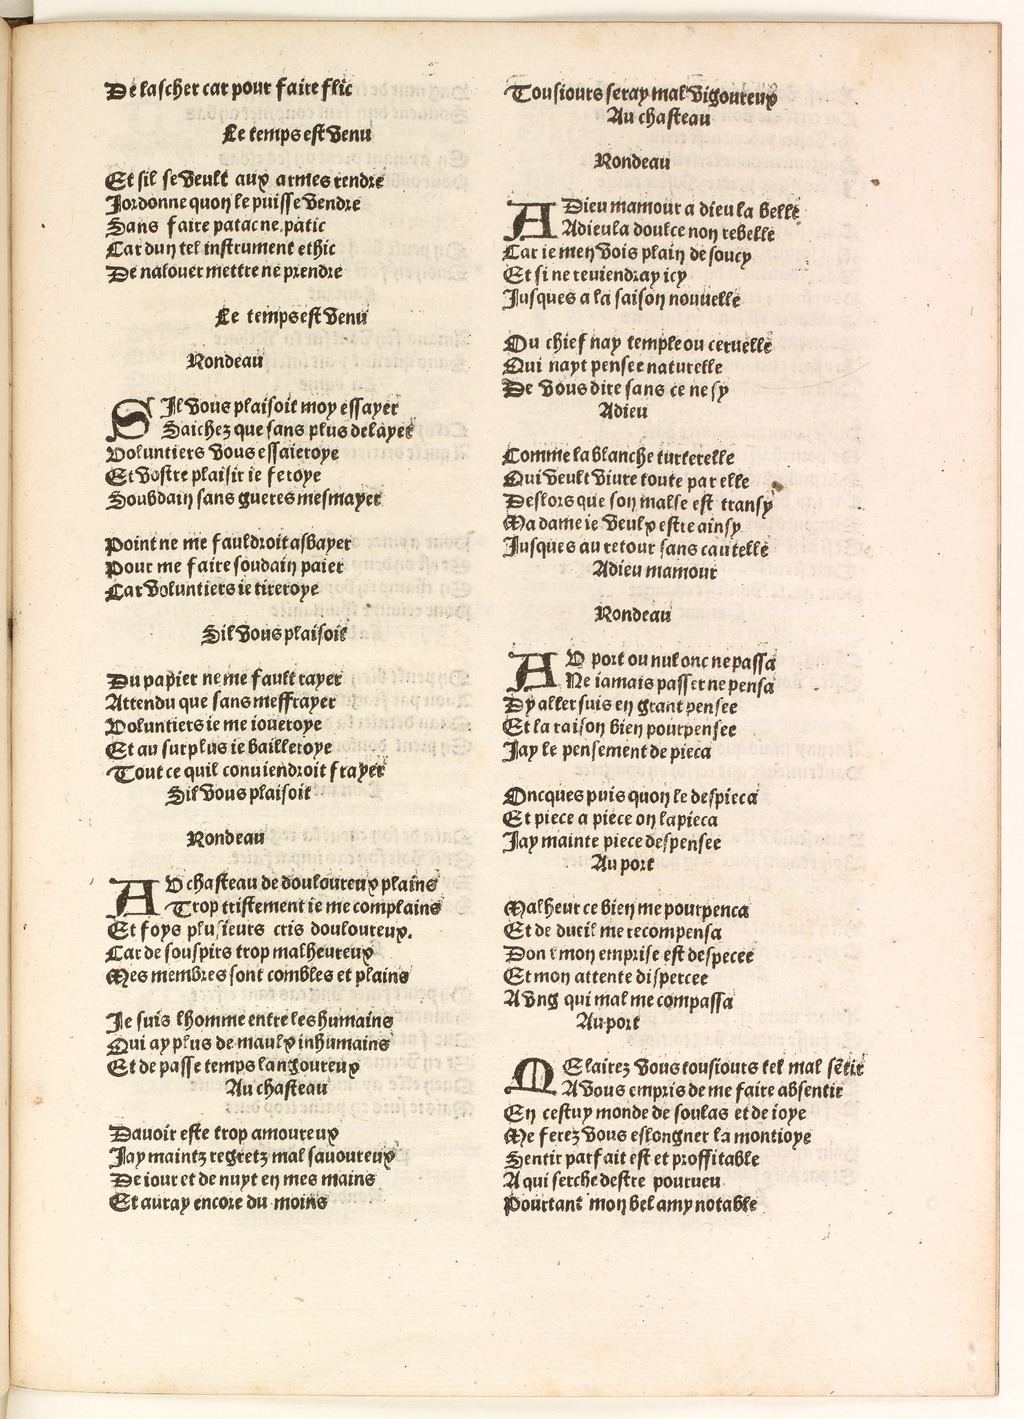 De lascher car pour faire flic
Le temps est venu
Et sil se veult aux armes rendre
Jordonne quon le puisse vendre
Sans faire patac ne patic
Car dun tel instrument ethic
De nalouer mettre ne prendre
Le temps est venu
Rondeau
SIl vous plaisoit moy essayer
Saichez que sans plus delayer
Voluntiers vous essaieroye
Et vostre plaisir ie feroye
Soubdain sans gueres mesmayer
Point ne me fauldroit abayer
Pour me faire soudain paier
Car voluntiers ie tireroye
Sil vous plaisoit
Du papier ne me fault rayer
Attendu que sans meffrayer
Voluntiers ie me ioueroye
Et au surplus ie bailleroye
Tout ce quil conviendroit frayer
Sil vous plaisoit
Rondeau
AV chasteau de douloureux plains
Trop tristement ie me complains
Et foys plusieurs cris douloureux.
Car de souspirs trop malheureux
Mes membres sont combles et plains
Je suis lhomme entre les humains
Qui ay plus de maulx inhumains
Et de passe temps langoureux
Au chasteau
Davoir este trop amoureux
Jay maintz regretz mal savoureux
De iour et de nuyt en mes mains
Et auray encore du moins
Tousiours seray mal vigoureux
Au chasteau
Rondeau
ADieu mamour a dieu la belle
Adieu la doulce non rebelle
Car ie men vois plain de soucy
Et si ne reviendray icy
Jusques a la saison nouuelle
Ou chief nay temple ou ceruelle
Qui nayt pensee naturelle
De vous dire sans ce ne sy
Adieu
Comme la blanche turterelle
Qui veult viure toute par elle
Deslors que son malse est transy
Ma dame ie veulx estre ainsy
Jusques au retour sans cautelle
Adieu mamour
Rondeau
AV port ou nul onc ne passa
Ne iamais passer ne pensa
Dy aller suis en grant pensee
Et la raison bien pourpensee
Jay le pensement de pieca
Oncques puis quon le despieca
Et piece a piece on lapieca
Jay mainte piece despensee
Au port
Malheur ce bien me pourpenca
Et de dueil me recompensa
Dont mon emprise est despecee
Et mon attente dispercee
A vng qui mal me compassa
Au port
ME lairez vous tousiours tel mal sẽtir
A vous empris de me faire absentir
En cestuy monde de soulas et de ioye
Me ferez vous eslongner la montioye
Sentir parfait est et proffitable
A qui serche destre pourueu
Pourtant mon bel amy notable